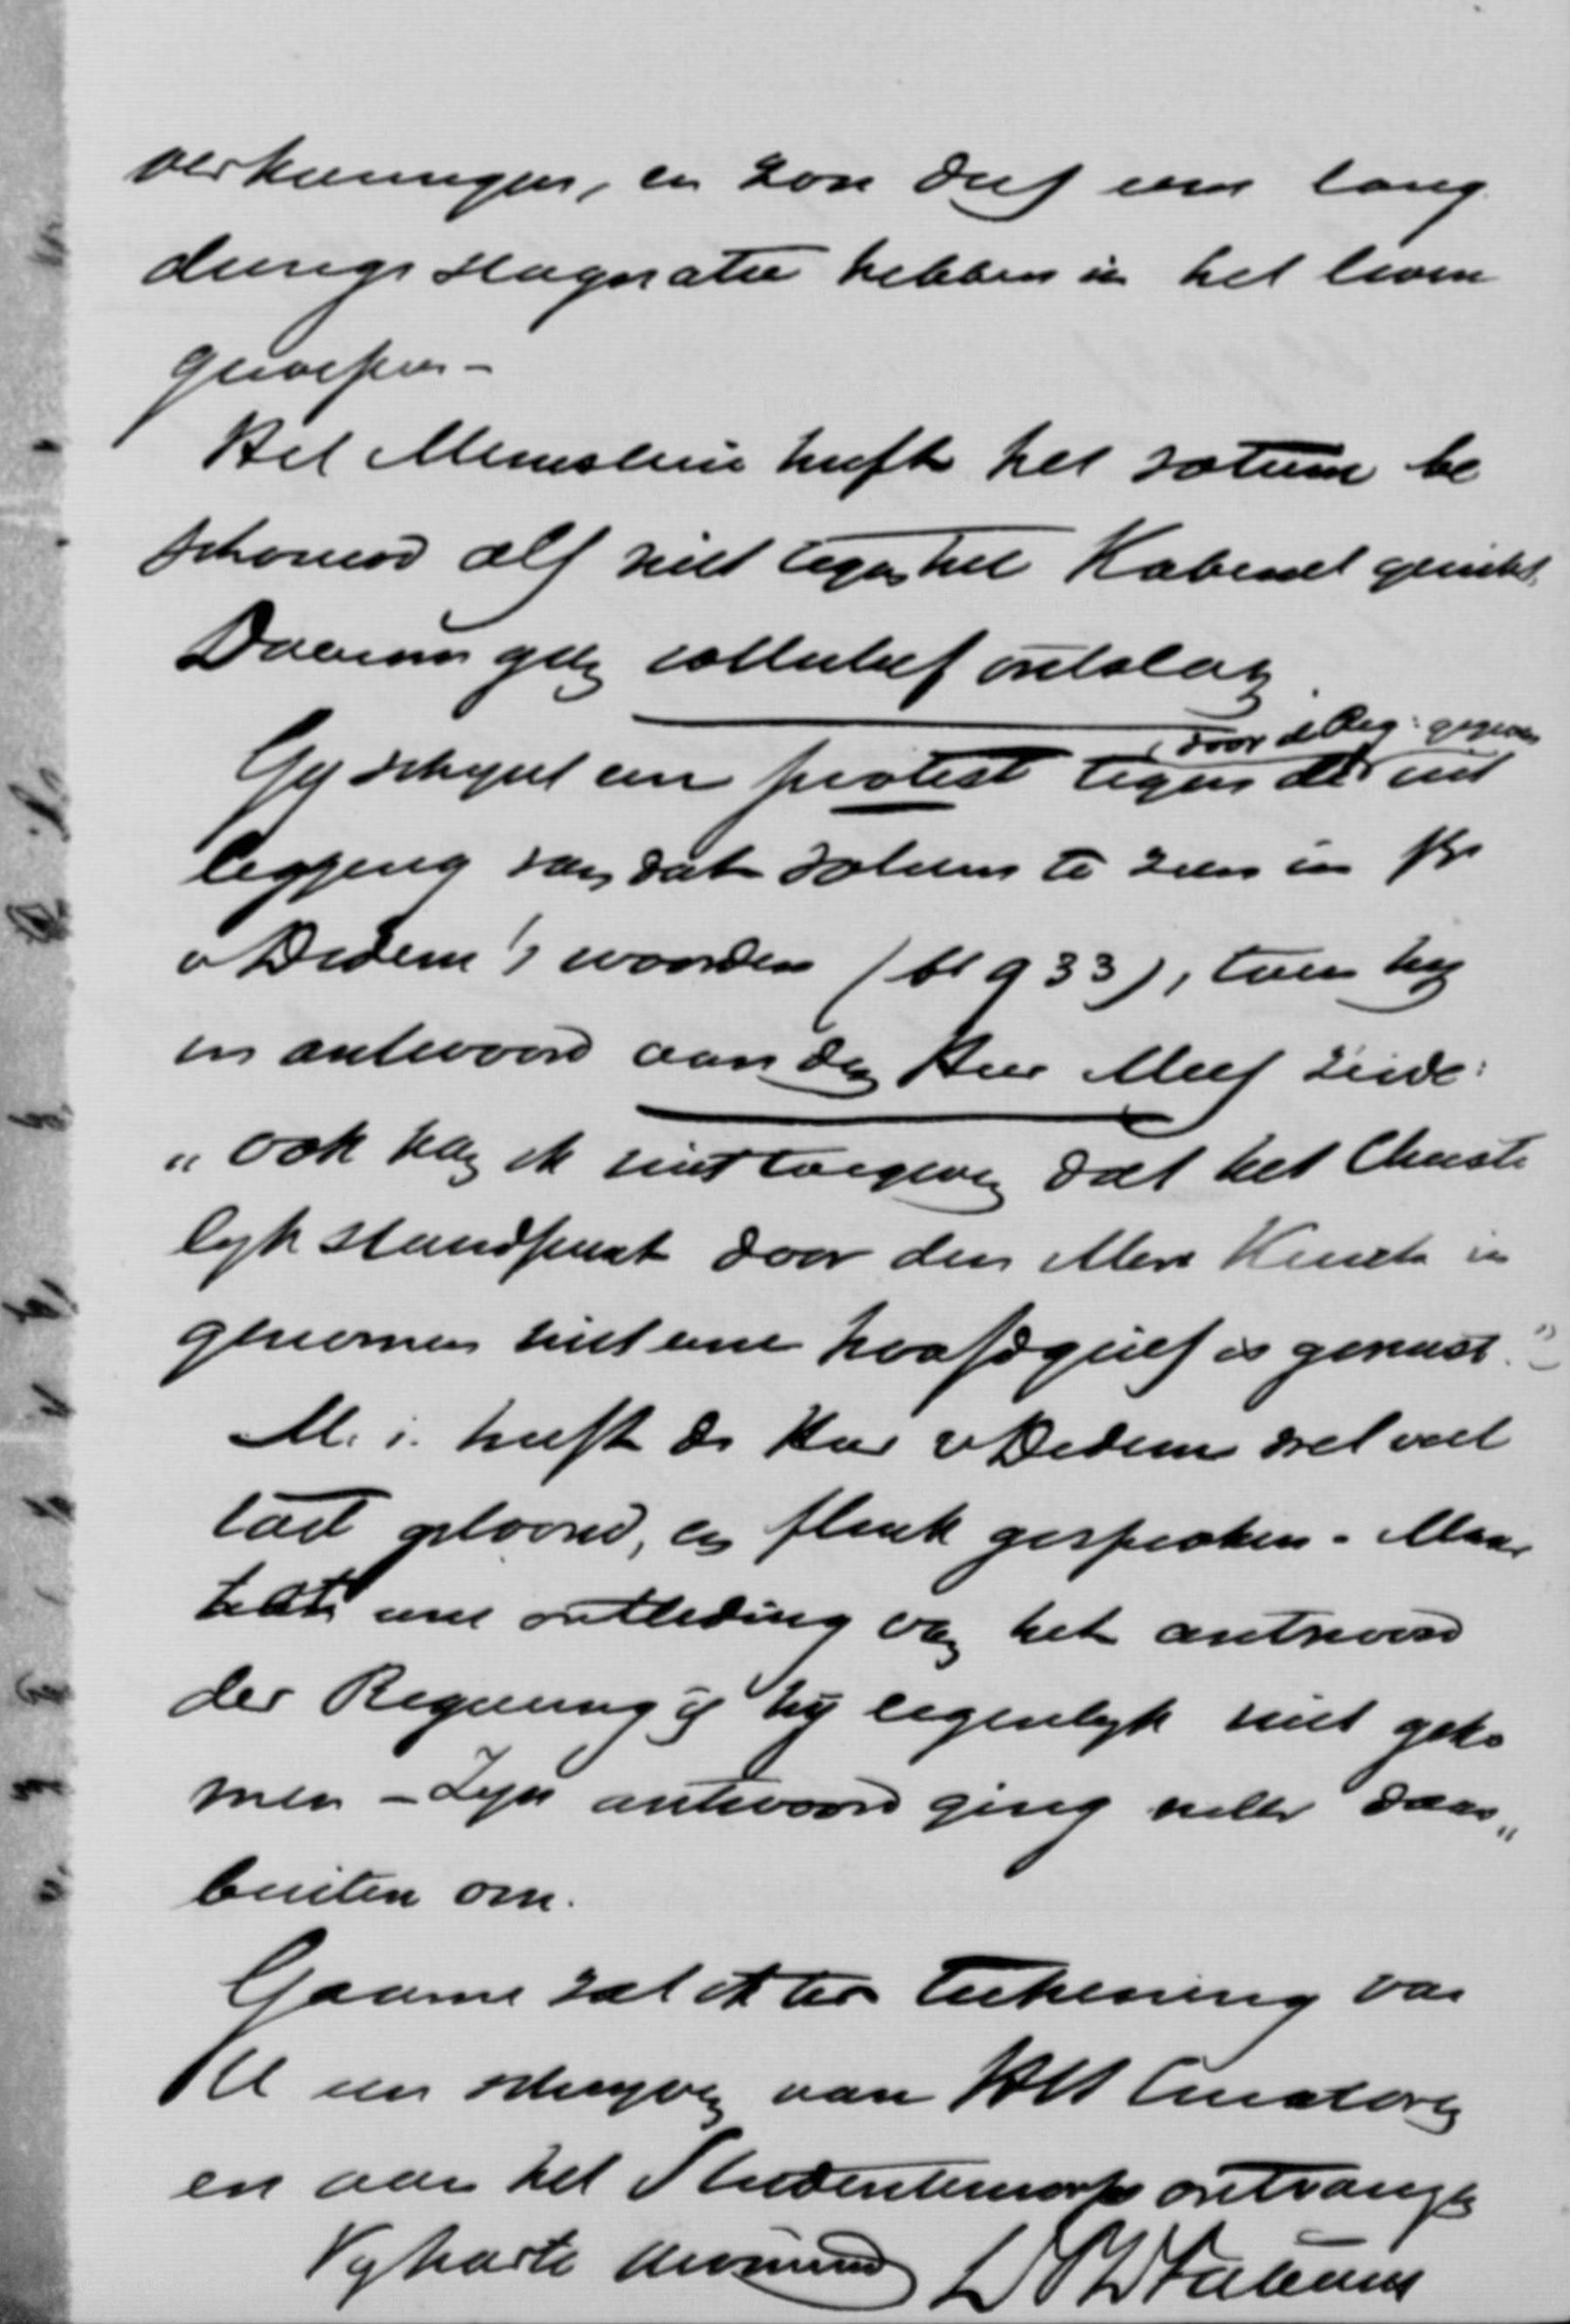 verkiezingen, en zou dus eene lang
durige stagnatie hebben in het leven
geroepen -
Het Ministerie heeft het votum be
schouwd als niet tegen het Kabinet gericht.
Daarom geen collectief ontslag.
Gy schynt een protest tegen de door de Reg: gegeven uit
legging van dat votum te zien in
v Dedem's woorden (bl 933), toen hy
in antwoord aan den Heer Mees zeide:
„ook kan ik niet toegeven dat het Christe
lyk standpunt door den Min Keuch in
genomen niet eene hoofdgrief is geweest."
M. i. heeft de Heer v Dedem veel veel
tact getoond, en flink gesproken - Maar
tot eene ontleding van het antwoord
der Regeering is hy eigenlyk niet geko
men - Zyn antwoord ging veeleer daar„
buiten om.
Gaarne zal ik ter teekening van
U een schryven aan HH Curatoren
en aan het Studentencorps ontvangen
t.t. DPD Fabius